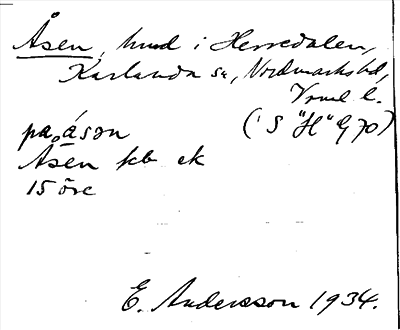 Åsen, hmd i Herredalen,
Karlanda sn, Nordmarks hd,
Vrml l.
på åsən (i S "H" G 70)
Åsen kb ek
15 öre
E. Andersson 1934.